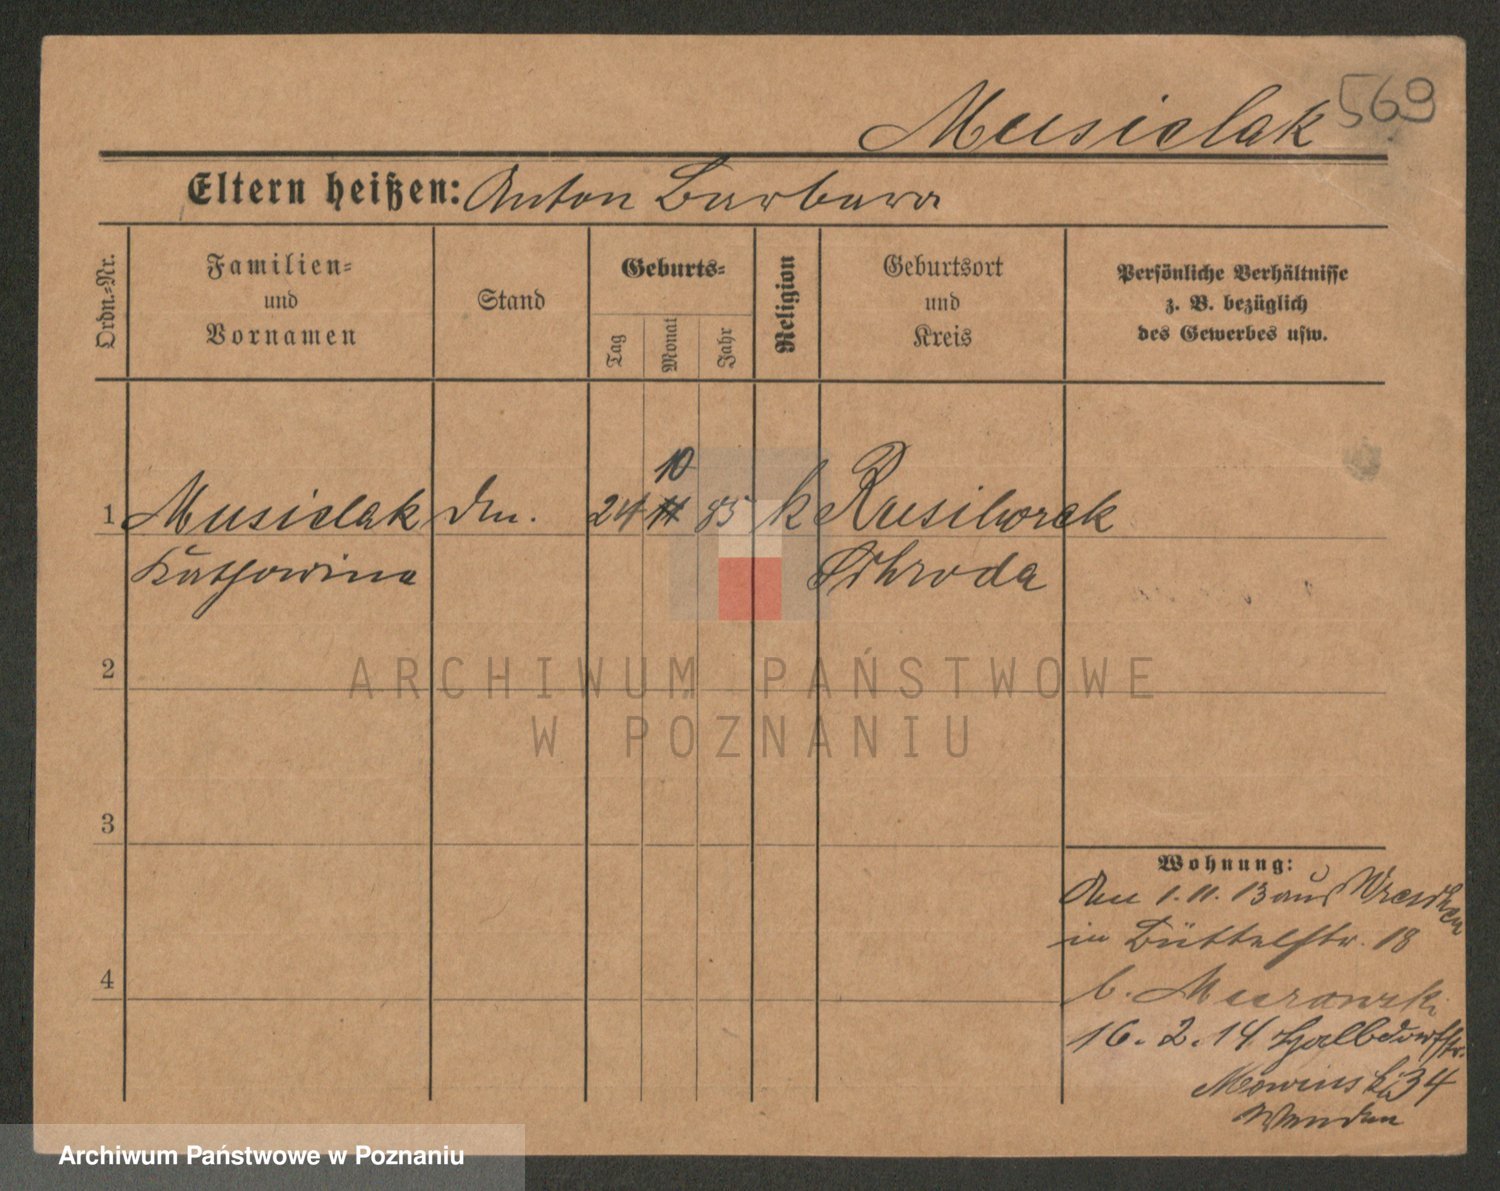 Musielak 569
Eltern heißen: Anton Barbara
Ordn.-Nr.
Familien-
und
Vornamen
Stand
Geburts-
Tag
Monat
Jahr
Religion
Geburtsort
und
Kreis
Persönliche Verhältnisse
z. B. bezüglich
des Gewerbes usw.
10
1 Musielak 24 11 85 k Rusiborek
Katharina Schroda
2
3
4
Wohnung:
1.11.13 aus Wreschen
in Büttelstr. 18
b. Murawski
16.2.14 Halbdorfstr.
34
ARCHIWUM PAŃSTWOWE
W POZNANIU
Archiwum Państwowe w Poznaniu